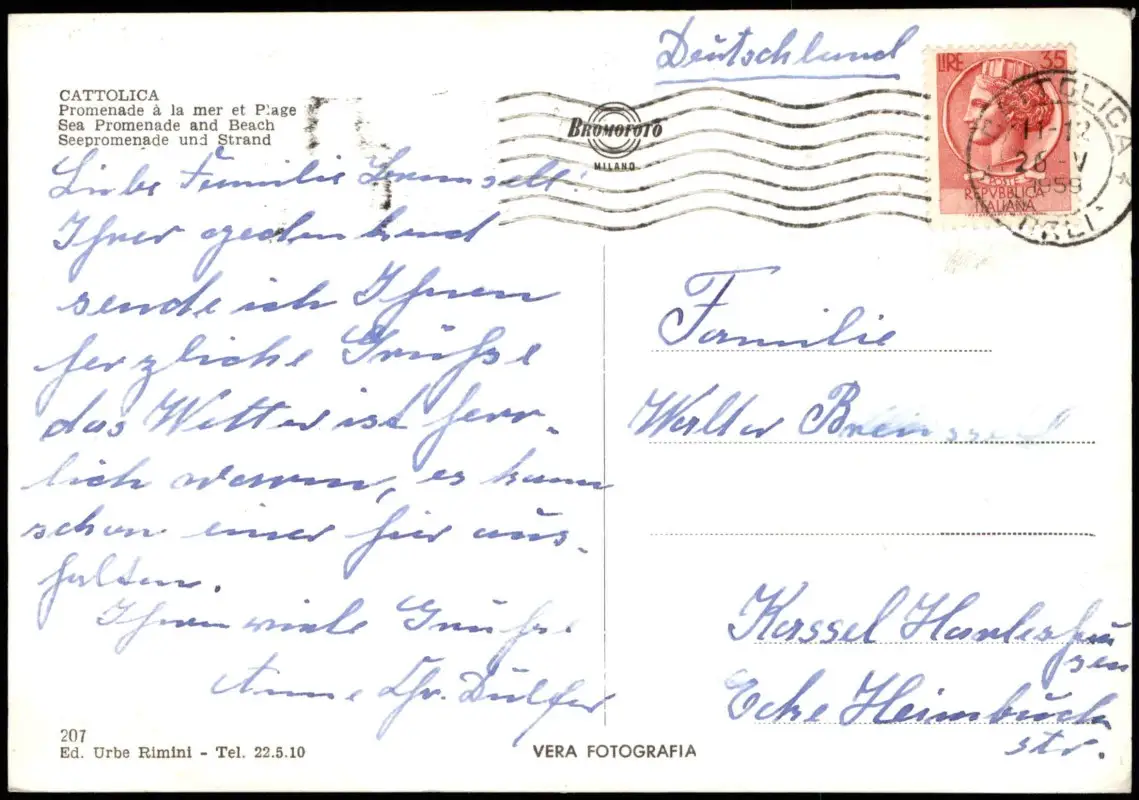 CATTOLICA
Promenade à la mer et Plage
Sea Promenade and Beach
Seepromenade und Strand
Liebe Familie
Ihrer gedenkend
sende ich Ihnen
herzliche Grüße
das Wetter ist herr-
lich warm, es kann
schon einer hier aus-
halten.
Ihnen viele Grüße
Anne Chr. Dülfer
207
Ed. Urbe Rimini - Tel. 22.5.10
BROMOFOTO
MILANO
VERA FOTOGRAFIA
Deutschland
LIRE 35
POSTE
REPVBBLICA
ITALIANA
CATTOLICA
11-12
26 V
1959
Familie
Walter
Kassel Harleshäu
sen
Ecke Heimbuch
str.